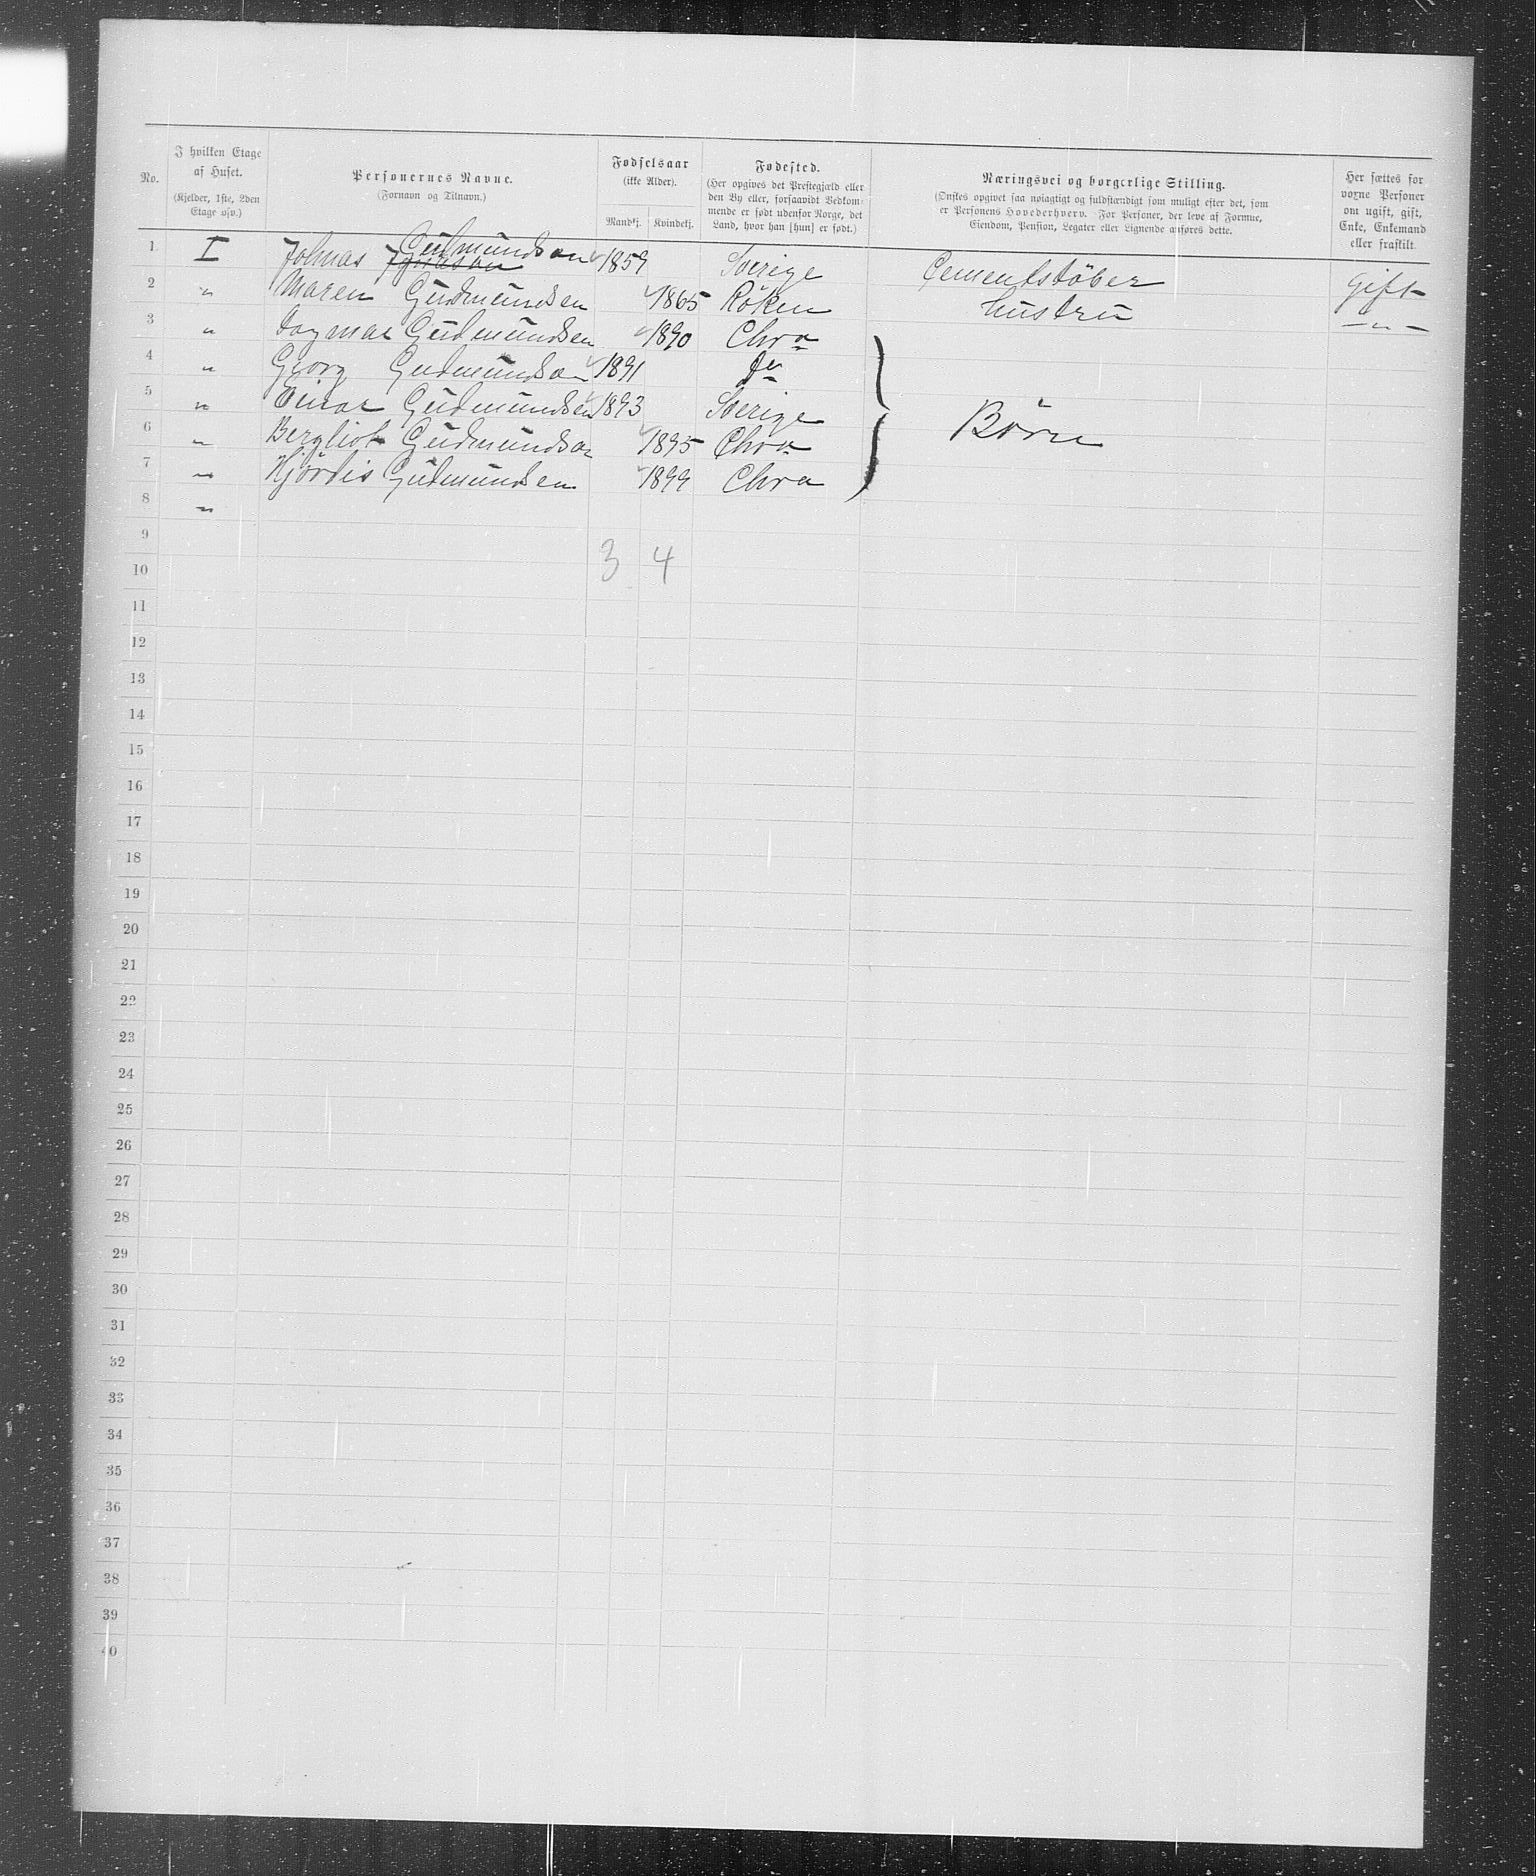 No.
I hvilken Etage af Huset. (Kjelder, 1ste, 2den Etage osv.)
Personernes Navne. (Fornavn og Tilnavn.)
Fødselsaar (ikke Alder).
Mandkj. Kvindekj.
Fødested. (Her opgives det Prestegjæld eller den By eller, forsaavidt Vedkommende er født udenfor Norge, det Land, hvor han [hun] er født.)
Næringsvei og borgerlige Stilling. (Ønskes opgivet saa nøiagtigt og fuldstændigt som muligt efter det, som er Personens Hovederhverv. For Personer, der leve af Formue, Eiendom, Pension, Legater eller Lignende anføres dette.
Her sættes for voxne Personer om ugift, gift, Enke, Enkemand eller fraskilt.
1 I Johnas Gudmundsen 1859 Sverige Cementstöber gift
2 " Maren Gudmundsen 1865 Röken Hustru — " —
3 " Dagmar Gudmundsen 1890 Chra
4 " Georg Gudmundsen 1891 Do
5 " Einar Gudmundsen 1893 Sverige Börn
6 " Bergliot Gudmundsen 1895 Chra
7 " Hjördis Gudmundsen 1899 Chra
8 "
9
3 4
10
11
12
13
14
15
16
17
18
19
20
21
22
23
24
25
26
27
28
29
30
31
32
33
34
35
36
37
38
39
40